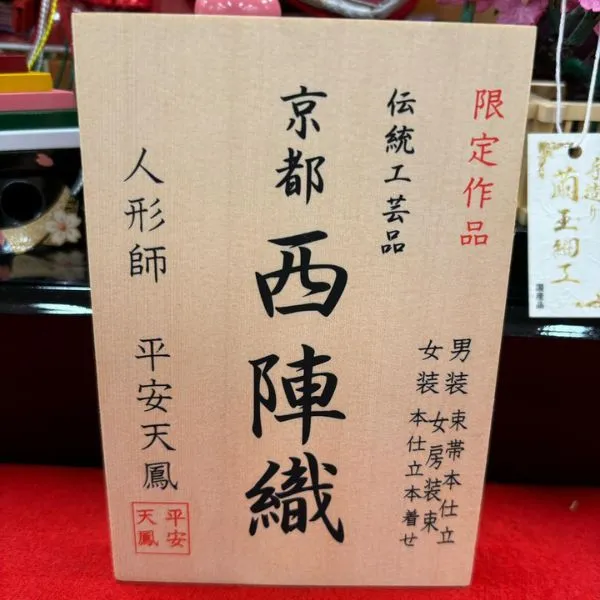 限定作品
伝統工芸品
男装 束帯本仕立
女装 女房装束
本仕立本着せ
京都 西陣織
人形師 平安天鳳
平安
天鳳
手造り
繭玉細工
国産品